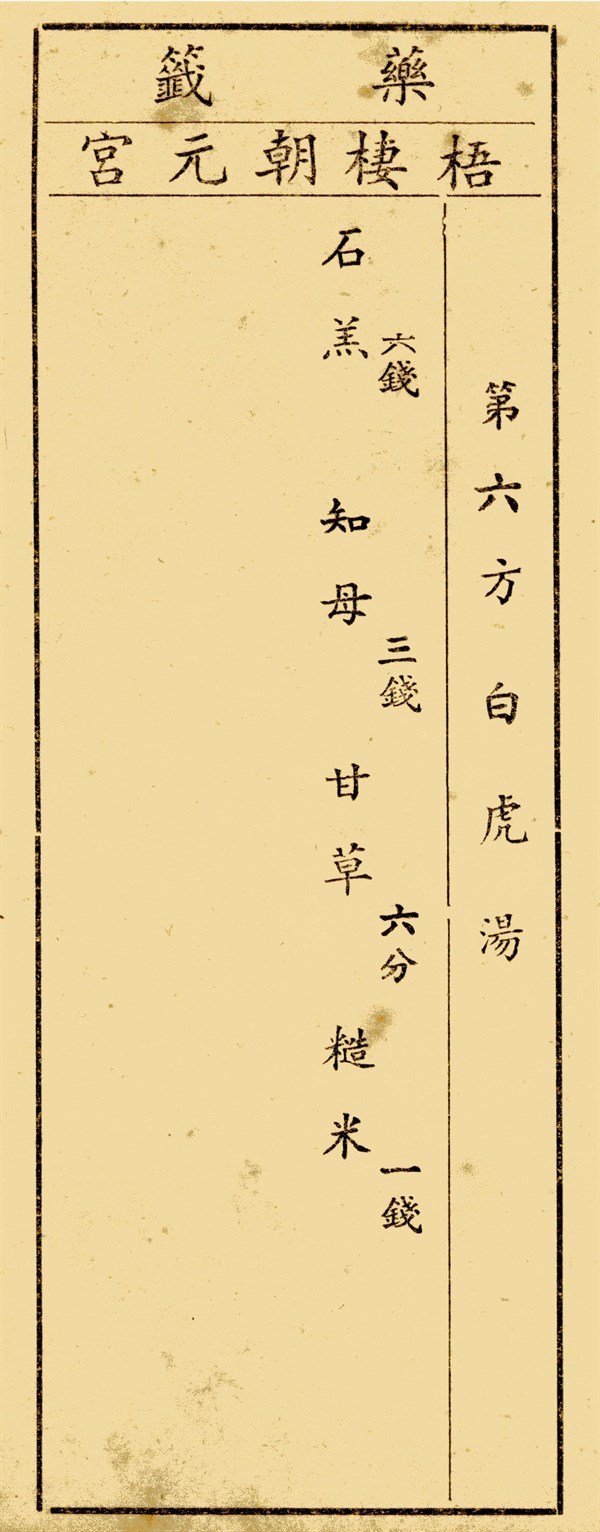 藥籤
梧棲朝元宮
第六方白虎湯
石羔 六錢 知母 三錢 甘草 六分 糙米 一錢